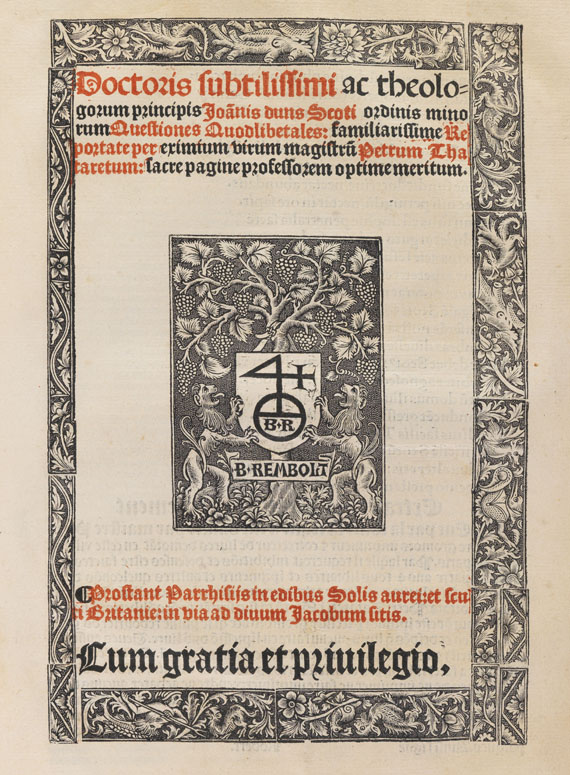 Doctoris subtilissimi ac theolo-
gorum principis Joãnis duns Scoti ordinis mino
rum Questiones Quodlibetales: familiarissime Re
portate per eximium virum magistrũ Petrum Tha
taretum: sacre pagine professorem optime meritum.
B R
B REMBOLT
Prostant Parrhisijs in edibus Solis aurei: et scu
ti Britanie: in via ad diuum Jacobum sitis.
Cum gratia et priuilegio.